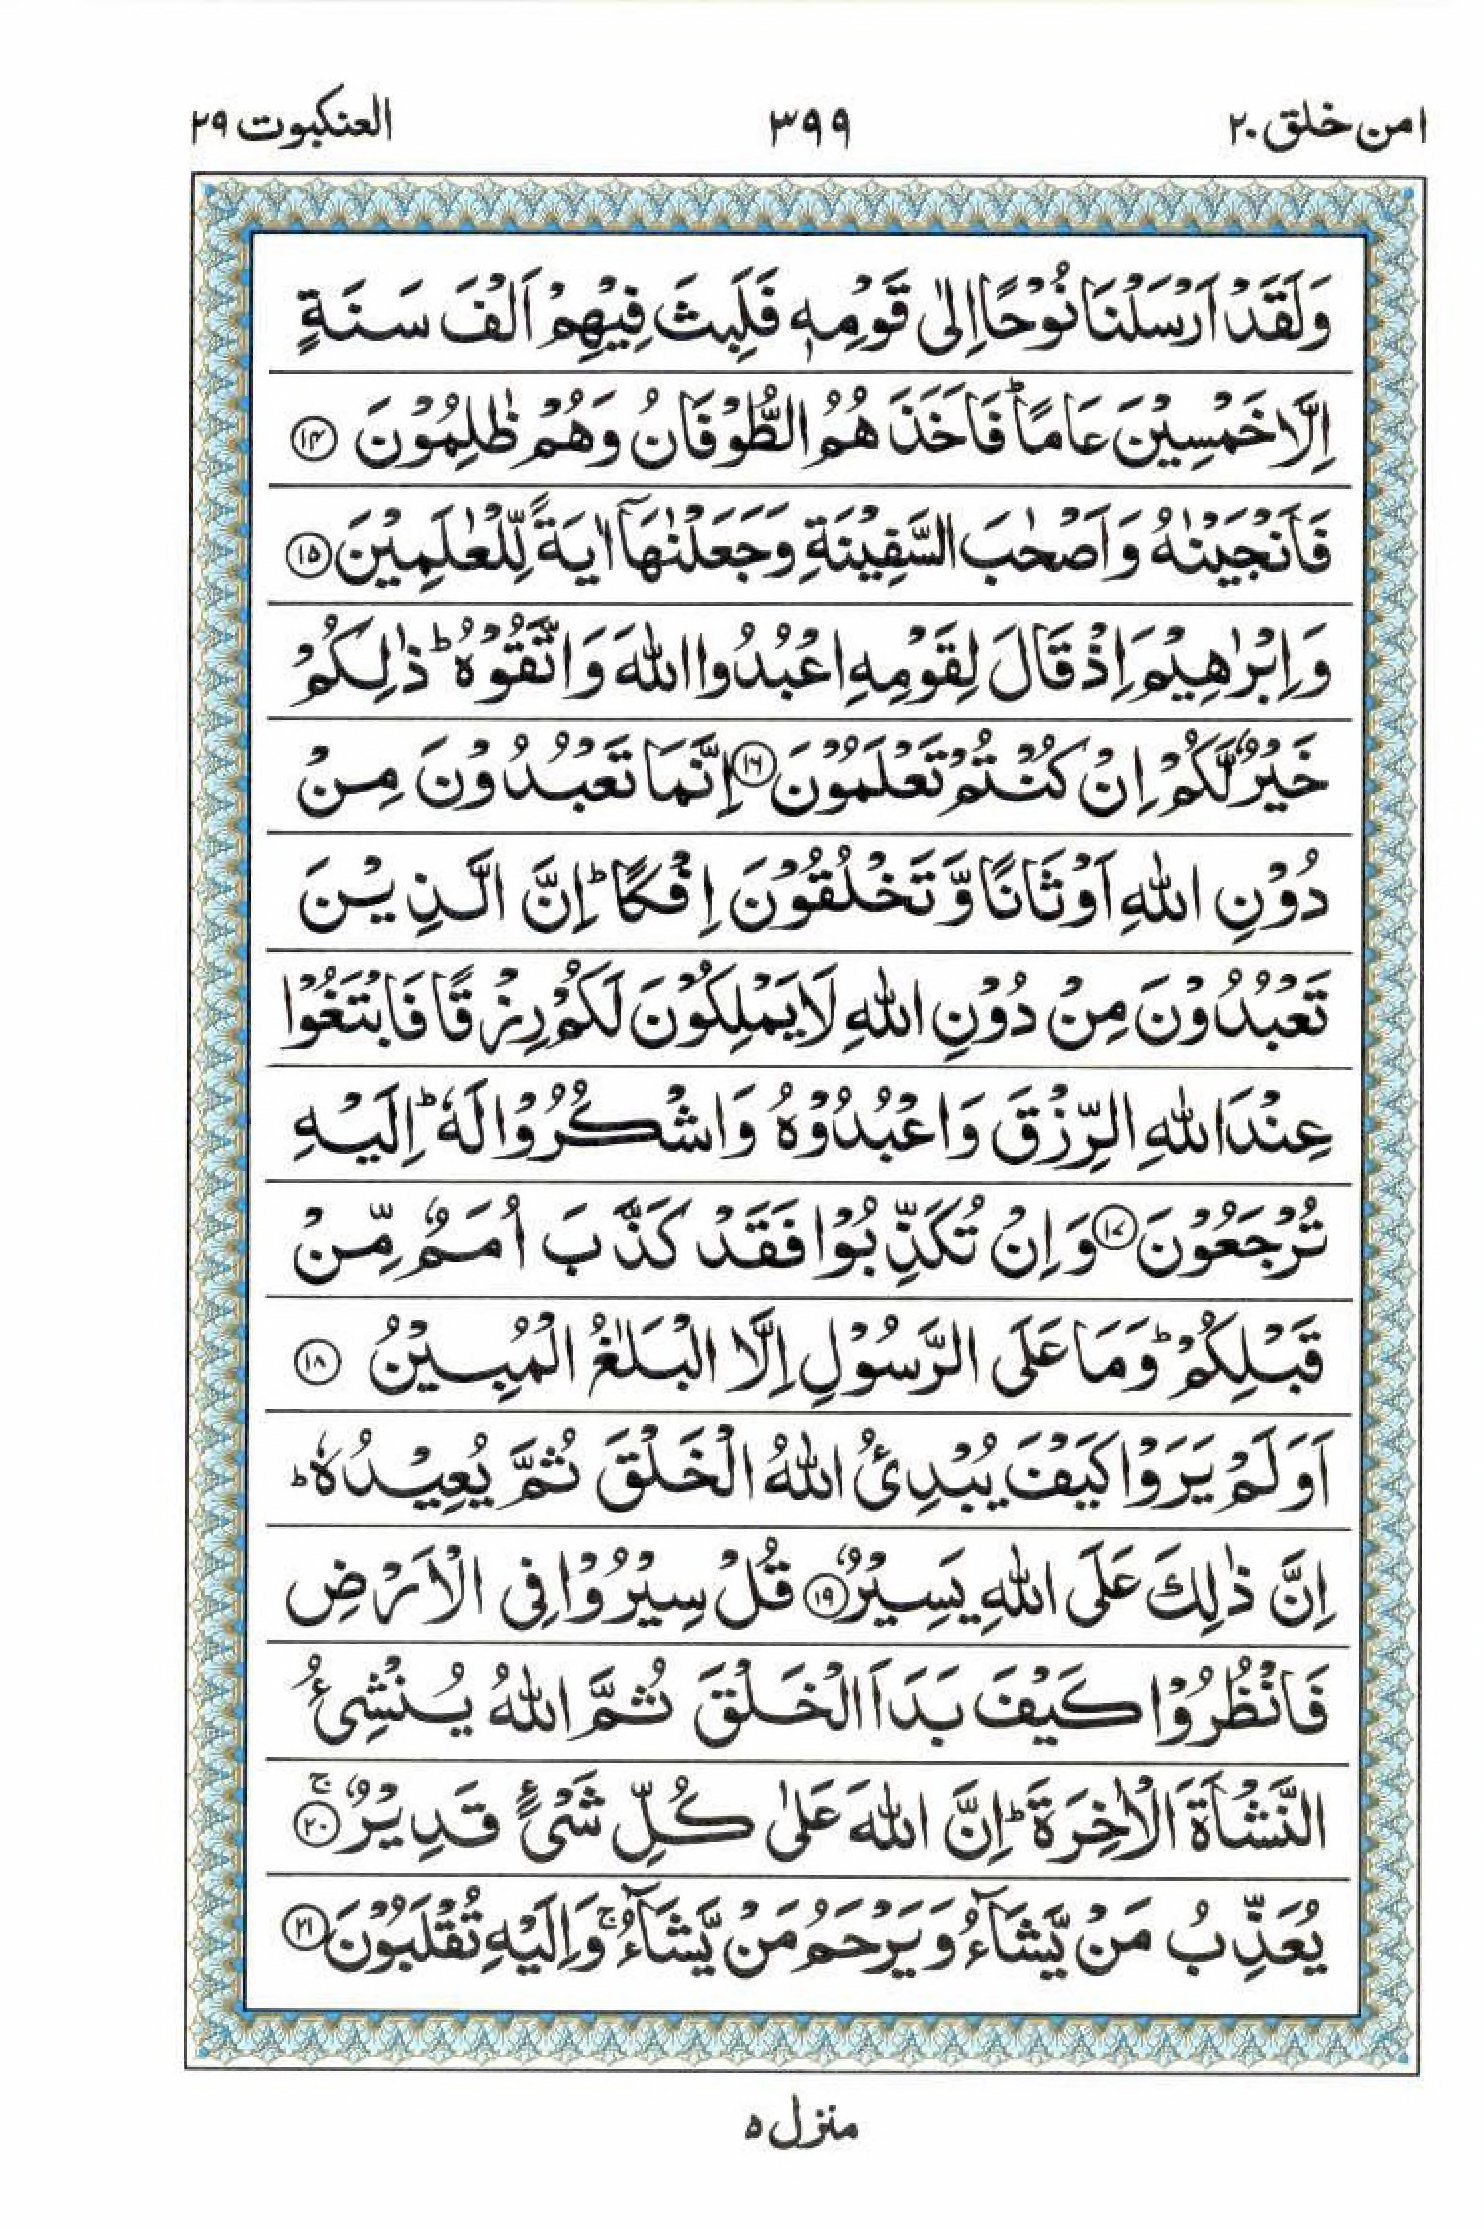 امن خلق ٢٠ ٣٩٩ العنكبوت ٢٩
وَلَقَدْ اَرْسَلْنَا نُوْحًا اِلٰى قَوْمِهٖ فَلَبِثَ فِيْهِمْ اَلْفَ سَنَةٍ
اِلَّا خَمْسِيْنَ عَامًا ؕ فَاَخَذَهُمُ الطُّوْفَانُ وَهُمْ ظٰلِمُوْنَ ﴿١٤﴾
فَاَنْجَيْنٰهُ وَاَصْحٰبَ السَّفِيْنَةِ وَجَعَلْنٰهَآ اٰيَةً لِّلْعٰلَمِيْنَ ﴿١٥﴾
وَاِبْرٰهِيْمَ اِذْ قَالَ لِقَوْمِهِ اعْبُدُوا اللّٰهَ وَاتَّقُوْهُ ؕ ذٰلِكُمْ
خَيْرٌ لَّكُمْ اِنْ كُنْتُمْ تَعْلَمُوْنَ ﴿١٦﴾ اِنَّمَا تَعْبُدُوْنَ مِنْ
دُوْنِ اللّٰهِ اَوْثَانًا وَّتَخْلُقُوْنَ اِفْكًا ؕ اِنَّ الَّذِيْنَ
تَعْبُدُوْنَ مِنْ دُوْنِ اللّٰهِ لَا يَمْلِكُوْنَ لَكُمْ رِزْقًا فَابْتَغُوْا
عِنْدَ اللّٰهِ الرِّزْقَ وَاعْبُدُوْهُ وَاشْكُرُوْا لَهٗ ؕ اِلَيْهِ
تُرْجَعُوْنَ ﴿١٧﴾ وَاِنْ تُكَذِّبُوْا فَقَدْ كَذَّبَ اُمَمٌ مِّنْ
قَبْلِكُمْ ؕ وَمَا عَلَى الرَّسُوْلِ اِلَّا الْبَلٰغُ الْمُبِيْنُ ﴿١٨﴾
اَوَلَمْ يَرَوْا كَيْفَ يُبْدِئُ اللّٰهُ الْخَلْقَ ثُمَّ يُعِيْدُهٗ ؕ
اِنَّ ذٰلِكَ عَلَى اللّٰهِ يَسِيْرٌ ﴿١٩﴾ قُلْ سِيْرُوْا فِى الْاَرْضِ
فَانْظُرُوْا كَيْفَ بَدَاَ الْخَلْقَ ثُمَّ اللّٰهُ يُنْشِئُ
النَّشْاَةَ الْاٰخِرَةَ ؕ اِنَّ اللّٰهَ عَلٰى كُلِّ شَىْءٍ قَدِيْرٌ ۚ ﴿٢٠﴾
يُعَذِّبُ مَنْ يَّشَآءُ وَيَرْحَمُ مَنْ يَّشَآءُ ۚ وَاِلَيْهِ تُقْلَبُوْنَ ﴿٢١﴾
منزل ٥